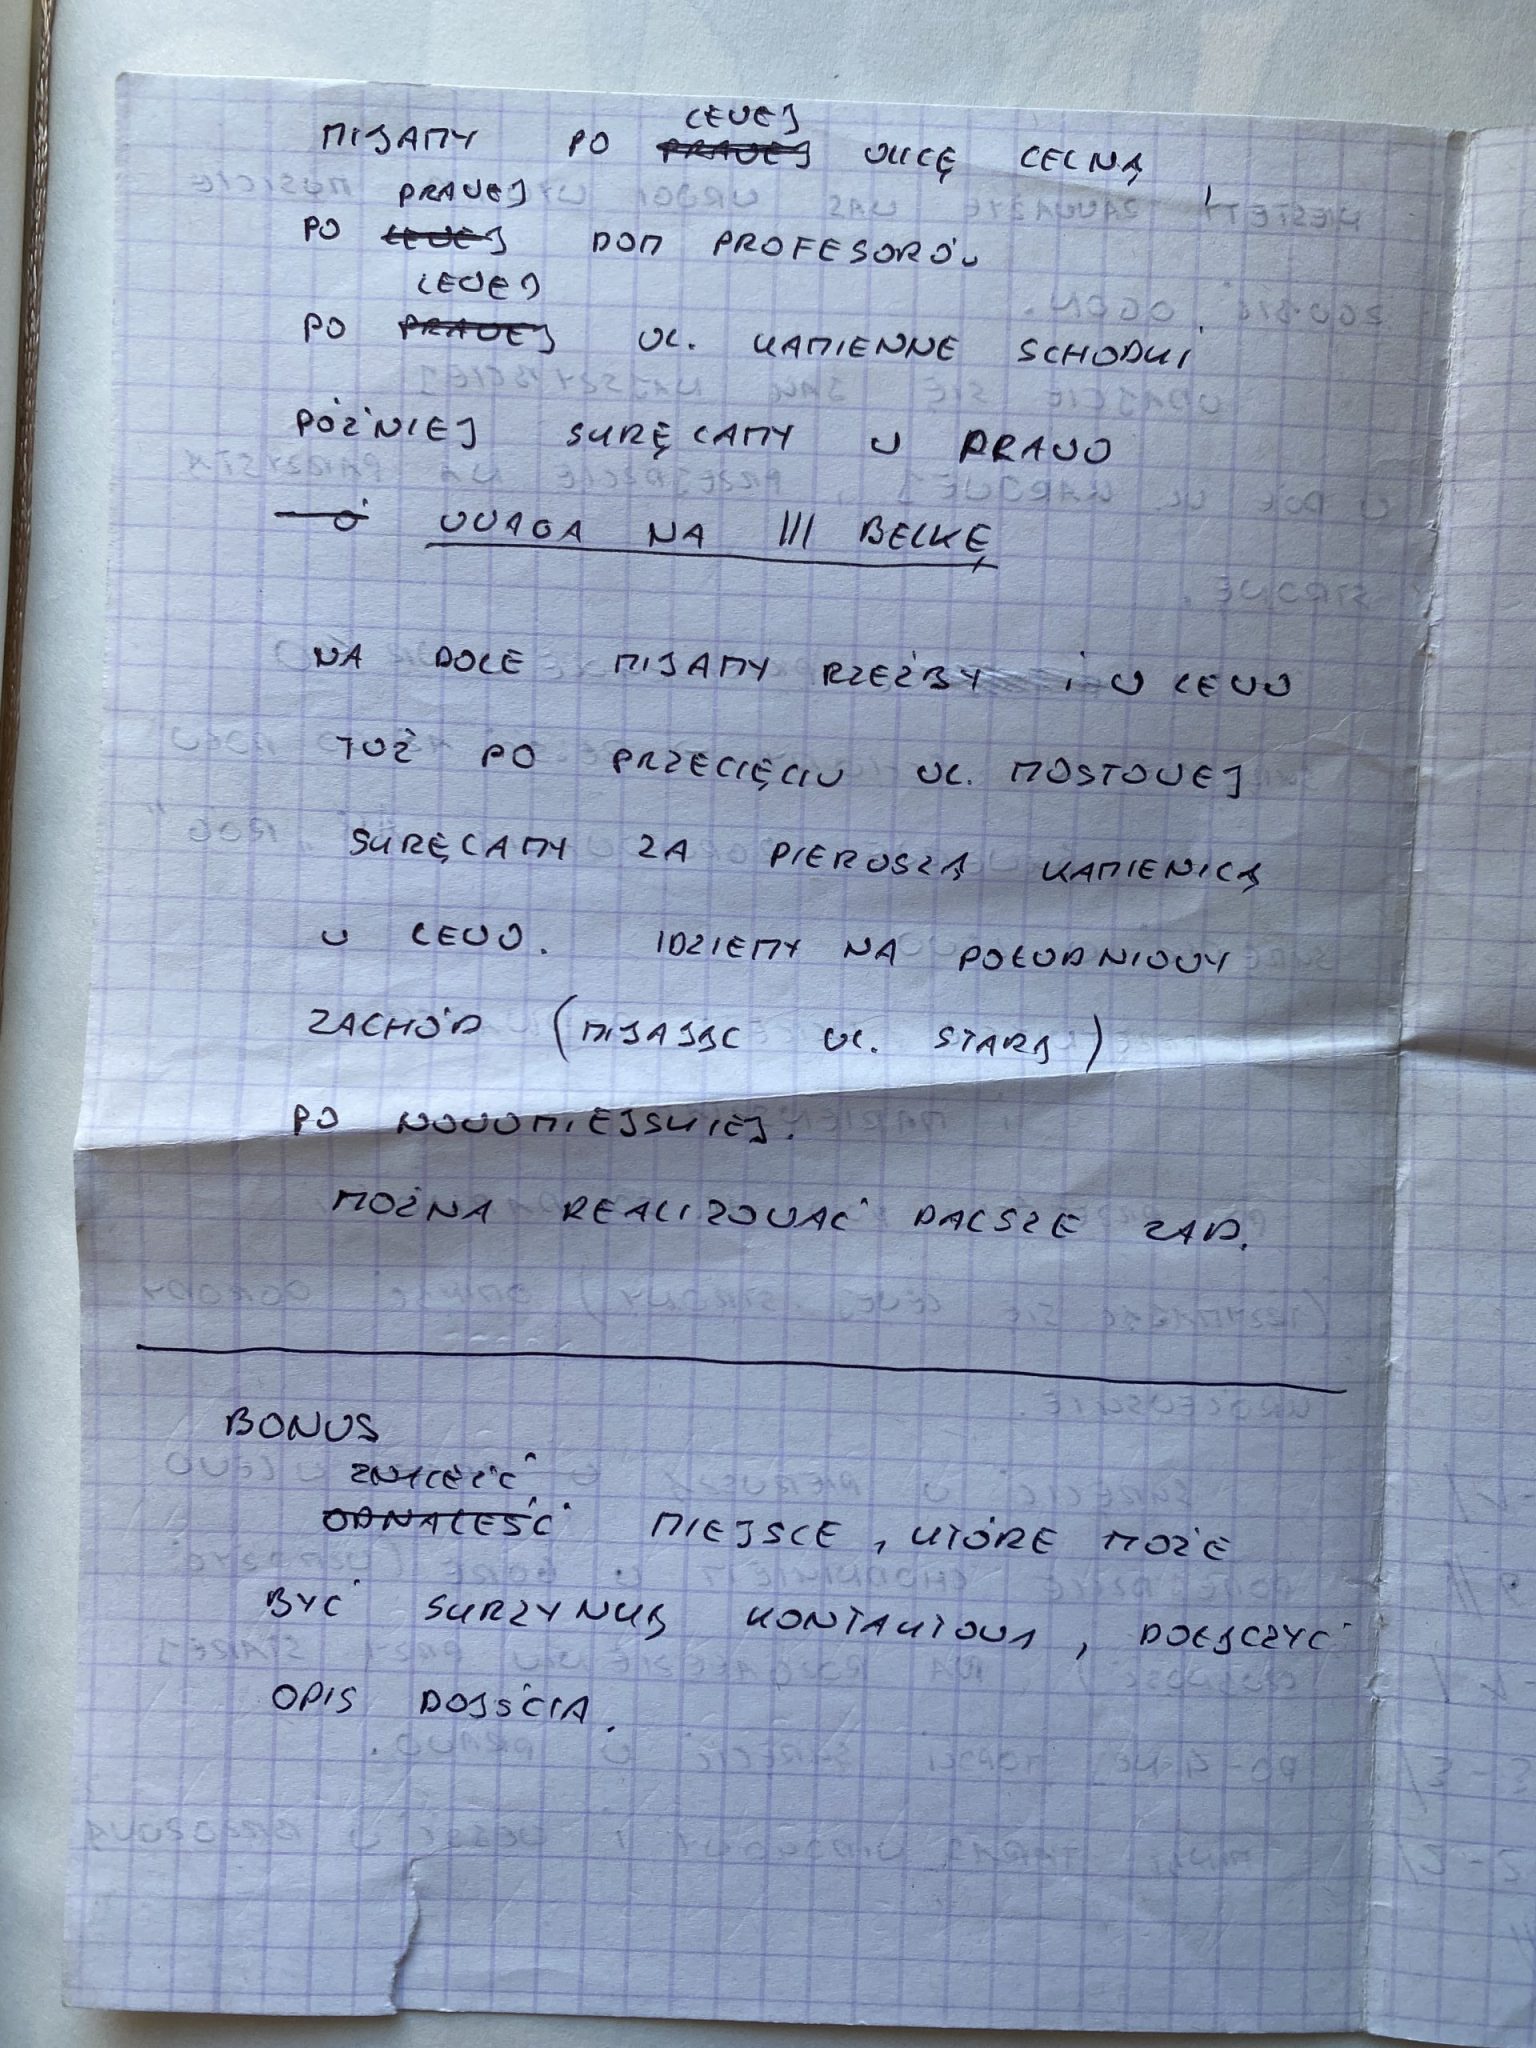 MIJAMY PO LEWEJ ~~PRAWEJ~~ ULICĘ CELNĄ,
PO PRAWEJ ~~LEWEJ~~ DOM PROFESORÓW
PO LEWEJ ~~PRAWEJ~~ UL. KAMIENNE SCHODKI
PÓŹNIEJ SKRĘCAMY W PRAWO
UWAGA NA III BELKĘ
NA DOLE MIJAMY RZEŹBY I W LEWO
TUŻ PO PRZECIĘCIU UL. MOSTOWEJ
SKRĘCAMY ZA PIERWSZĄ KAMIENICĄ
W LEWO. IDZIEMY NA POŁUDNIOWY
ZACHÓD (MIJAJĄC UL. STARĄ)
PO NOWOMIEJSKIEJ.
MOŻNA REALIZOWAĆ DALSZE ZAD.
BONUS
ZNALEŹĆ
~~ODNALEŚĆ~~ MIEJSCE, KTÓRE MOŻE
BYĆ SKRZYNKĄ KONTAKTOWĄ, DOŁĄCZYĆ
OPIS DOJŚCIA.